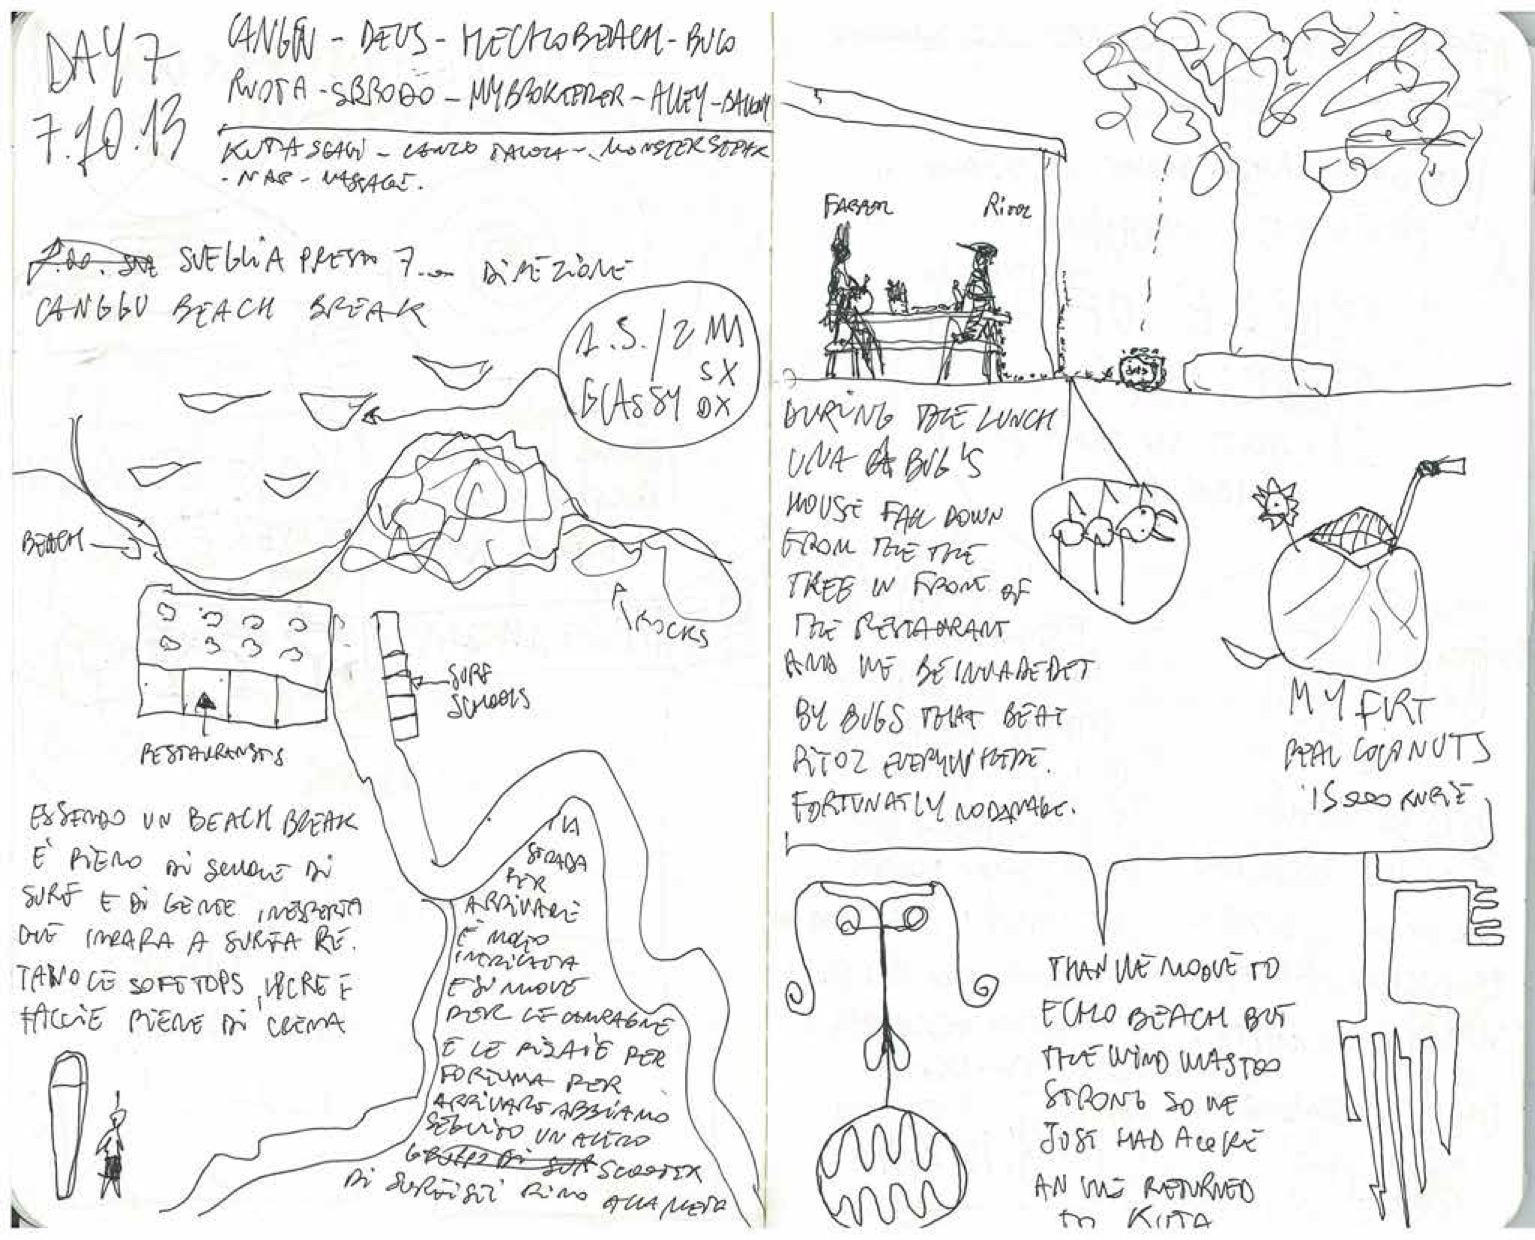 DAY 7
7.10.13
CANGGU - DEUS - HECHO BEACH - BUCO
RUOTA - - ALLEY -
KUTA - - MONSTER
- NAP - MASSAGE.
SVEGLIA PRESTO 7... DIREZIONE
CANGGU BEACH BREAK
A.S./2 M
SX
GLASSY DX
BEACH
ROCKS
SURF
SCHOOLS
RESTAURANTS
ESSENDO UN BEACH BREAK
È PIENO DI SCUOLE DI
SURF E DI GENTE INESPERTA
CHE IMPARA A SURFARE.
TAVOLE SOFT TOPS, LYCRE E
FACCIE PIENE DI CREMA
LA
STRADA
PER
ARRIVARE
È MOLTO
INTRICATA
E SI MUOVE
PER LE CAMPAGNE
E LE RISAIE PER
FORTUNA PER
ARRIVARE ABBIAMO
SEGUITO UN ALTRO
SCOOTER
DI SURFISTI FINO ALLA META
FABER
RITOZ
DURING THE LUNCH
UNA A BUG'S
HOUSE FALL DOWN
FROM THE THE
TREE IN FRONT OF
THE RESTAURANT
AND WE BE INVADEDET
BY BUGS THAT BEAT
RITOZ EVERYWHERE.
FORTUNATLY NO DAMAGE.
MY FIRT
REAL COCONUTS
15000 RUPIE
THAN WE MOOVE TO
ECHO BEACH BUT
THE WIND WAS TOO
STRONG SO WE
JUST HAD A
AN WE RETURNED
TO KUTA